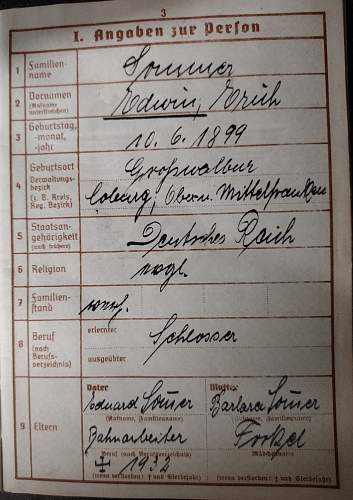 3
I. Angaben zur Person
1 Familien-
name
Sommer
2 Vornamen
(Rufname
unterstreichen)
Edwin, Erich
3 Geburtstag,
-monat,
-jahr
10. 6. 1899
4 Geburtsort
Verwaltungs-
bezirk
(z. B. Kreis,
Reg. Bezirk)
Großwalbur
Coburg, Obern. Mittelfranken
5 Staatsan-
gehörigkeit
(auch frühere)
Deutsches Reich
6 Religion
evgl.
7 Familien-
stand
verh.
8 Beruf
(nach
Berufs-
verzeichnis)
erlernter
Schlosser
ausgeübter
9 Eltern
Vater
Mutter
Eduard Somer
Barbara Somer
(Rufname, Familienname)
(Rufname, Familienname)
Bahnarbeiter
Beruf (nach Berufsverzeichnis)
Mädchenname
† 1932
(wenn verstorben: † und Sterbejahr)
(wenn verstorben: † und Sterbejahr)